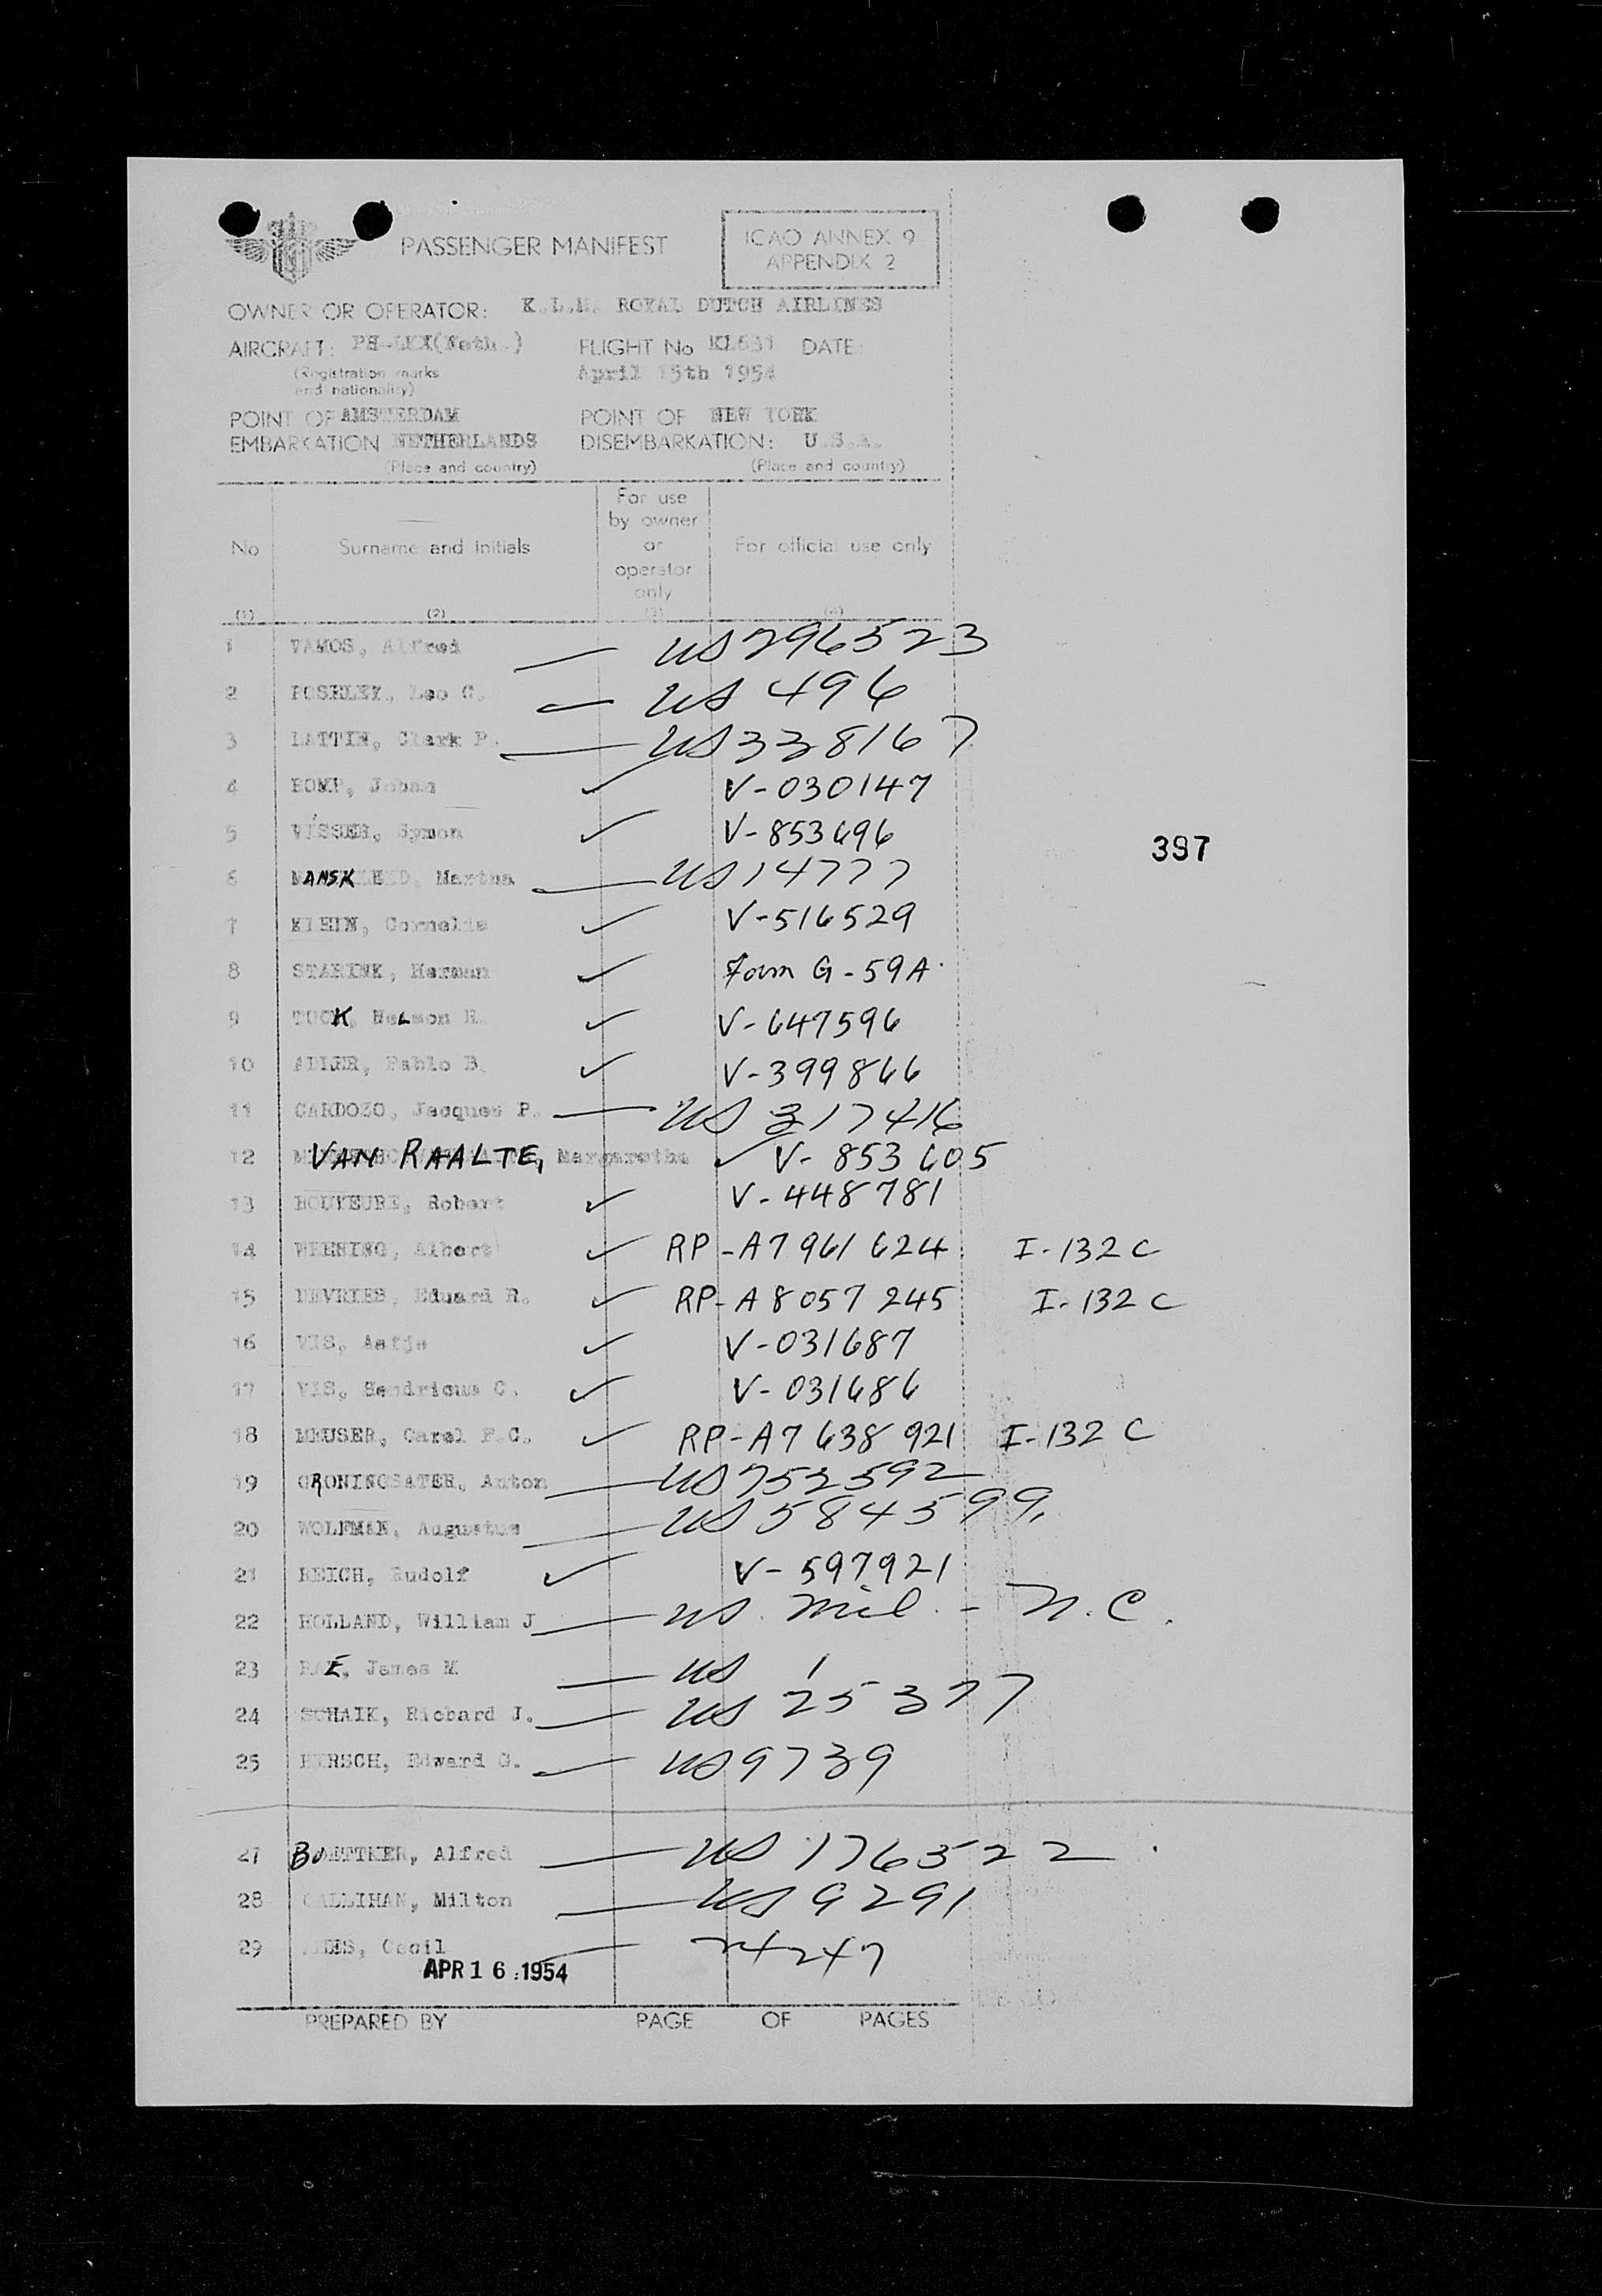 PASSENGER MANIFEST
ICAO ANNEX 9
APPENDIX 2
OWNER OR OPERATOR: K.L.M. ROYAL DUTCH AIRLINES
AIRCRAFT: (Neth.) FLIGHT No KL631 DATE:
(Registration marks
and nationality)
April 15th 1954
POINT OF AMSTERDAM POINT OF NEW YORK
EMBARKATION NETHERLANDS DISEMBARKATION: U.S.A.
(Place and country) (Place and country)
No Surname and initials For use by owner or operator only For official use only
(1) (2) (3) (4)
1 VAMOS, Alfred US 296523
2 Leo C. US 496
3 LATTIN, Clark P. US 338167
4 KOMP, Johan V-030147
5 VISSER, Symon V-853696
6 US 14777
7 KLEIN, Cornelis V-516529
8 STARINK, Herman Form G-59A
9 Nelson V-647596
10 Pablo B. V-399866
11 CARDOZO, Jacques P. US 317416
12 VAN RAALTE, Margaretha V-853605
13 Robert V-448781
14 Albert RP-A7961624 I-132C
15 DEVRIES, Eduard R. RP-A8057245 I-132C
16 VIS, Aafje V-031687
17 VIS, Hendricus C. V-031686
18 MEUSER, Carel F.C. RP-A7638921 I-132C
19 GRONINGSATER, Anton US 752592
20 WOLFMAN, Augustus US 584599
21 REICH, Rudolf V-597921
22 HOLLAND, William J US. Mil. - N.C.
23 RAE, James M US 1
24 SCHAIK, Richard J. US 25377
25 HERSCH, Edward G. US 9739
27 BOETTKER, Alfred US 176522
28 CALLIHAN, Milton US 9291
29 Cecil 24247
APR 16 1954
PREPARED BY PAGE OF PAGES
397